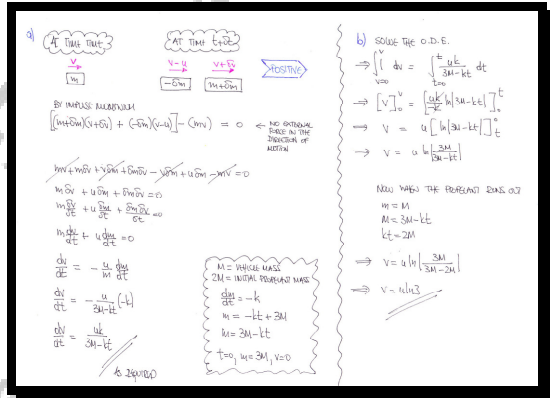 a)
AT TIME t
AT TIME t+δt
v
v-u
v+δv
POSITIVE
m
-δm
m+δm
BY IMPULSE MOMENTUM
[(m+δm)(v+δv) + (-δm)(v-u)] - (mv) = 0
← NO EXTERNAL
FORCE IN THE
DIRECTION OF
MOTION
mv + mδv + vδm + δmδv - vδm + uδm - mv = 0
mδv + uδm + δmδv = 0
m δv/δt + u δm/δt + δmδv/δt = 0
m dv/dt + u dm/dt = 0
dv/dt = - u/m dm/dt
dv/dt = - u/(3M-kt) (-k)
dv/dt = uk/(3M-kt)
AS REQUIRED
M = VEHICLE MASS
2M = INITIAL PROPELLANT MASS
dm/dt = -k
m = -kt + 3M
m = 3M-kt
t=0, m=3M, v=0
b) SOLVE THE O.D.E.
⇒ ∫_{v=0}^{v} 1 dv = ∫_{t=0}^{t} uk/(3M-kt) dt
⇒ [v]_0^v = [uk/-k ln|3M-kt|]_0^t
⇒ v = u[ln|3M-kt|]_t^0
⇒ v = u ln|3M/(3M-kt)|
NOW WHEN THE PROPELLANT RUNS OUT
m = M
M = 3M-kt
kt = 2M
⇒ v = u ln|3M/(3M-2M)|
⇒ v = u ln3